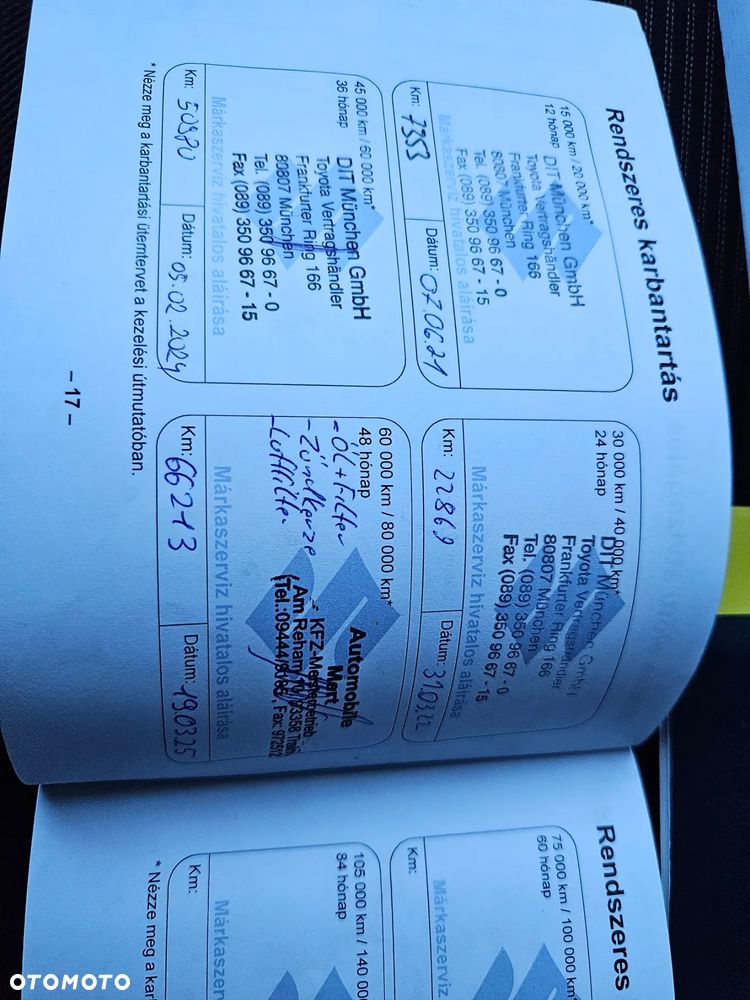 Rendszeres karbantartás
15 000 km / 20 000 km*
12 hónap
DIT München GmbH
Toyota Vertragshändler
Frankfurter Ring 166
80807 München
Tel. (089) 350 96 67 - 0
Fax (089) 350 96 67 - 15
Márkaszerviz hivatalos aláírása
Km: 7353
Dátum: 07.06.21
30 000 km / 40 000 km*
24 hónap
DIT München GmbH
Toyota Vertragshändler
Frankfurter Ring 166
80807 München
Tel. (089) 350 96 67 - 0
Fax (089) 350 96 67 - 15
Márkaszerviz hivatalos aláírása
Km: 22869
Dátum: 31.03.22
45 000 km / 60 000 km*
36 hónap
DIT München GmbH
Toyota Vertragshändler
Frankfurter Ring 166
80807 München
Tel. (089) 350 96 67 - 0
Fax (089) 350 96 67 - 15
Márkaszerviz hivatalos aláírása
Km: 50970
Dátum: 05.02.2024
60 000 km / 80 000 km*
48 hónap
- ÖL + Filter
- Zündkerze
- Luftfilter
Automobile
Mert
KFZ-Meisterbetrieb
Am Reham 10, 93358 Train
Fax: 972512
Márkaszerviz hivatalos aláírása
Km: 66213
Dátum: 19.03.25
* Nézze meg a karbantartási ütemtervet a kezelési útmutatóban.
- 17 -
Rendszeres
75 000 km / 100 000 km*
60 hónap
Márkaszerv
Km:
105 000 km / 140 00
84 hónap
Márkaszerv
Km:
* Nézze meg a kar
OTOMOTO